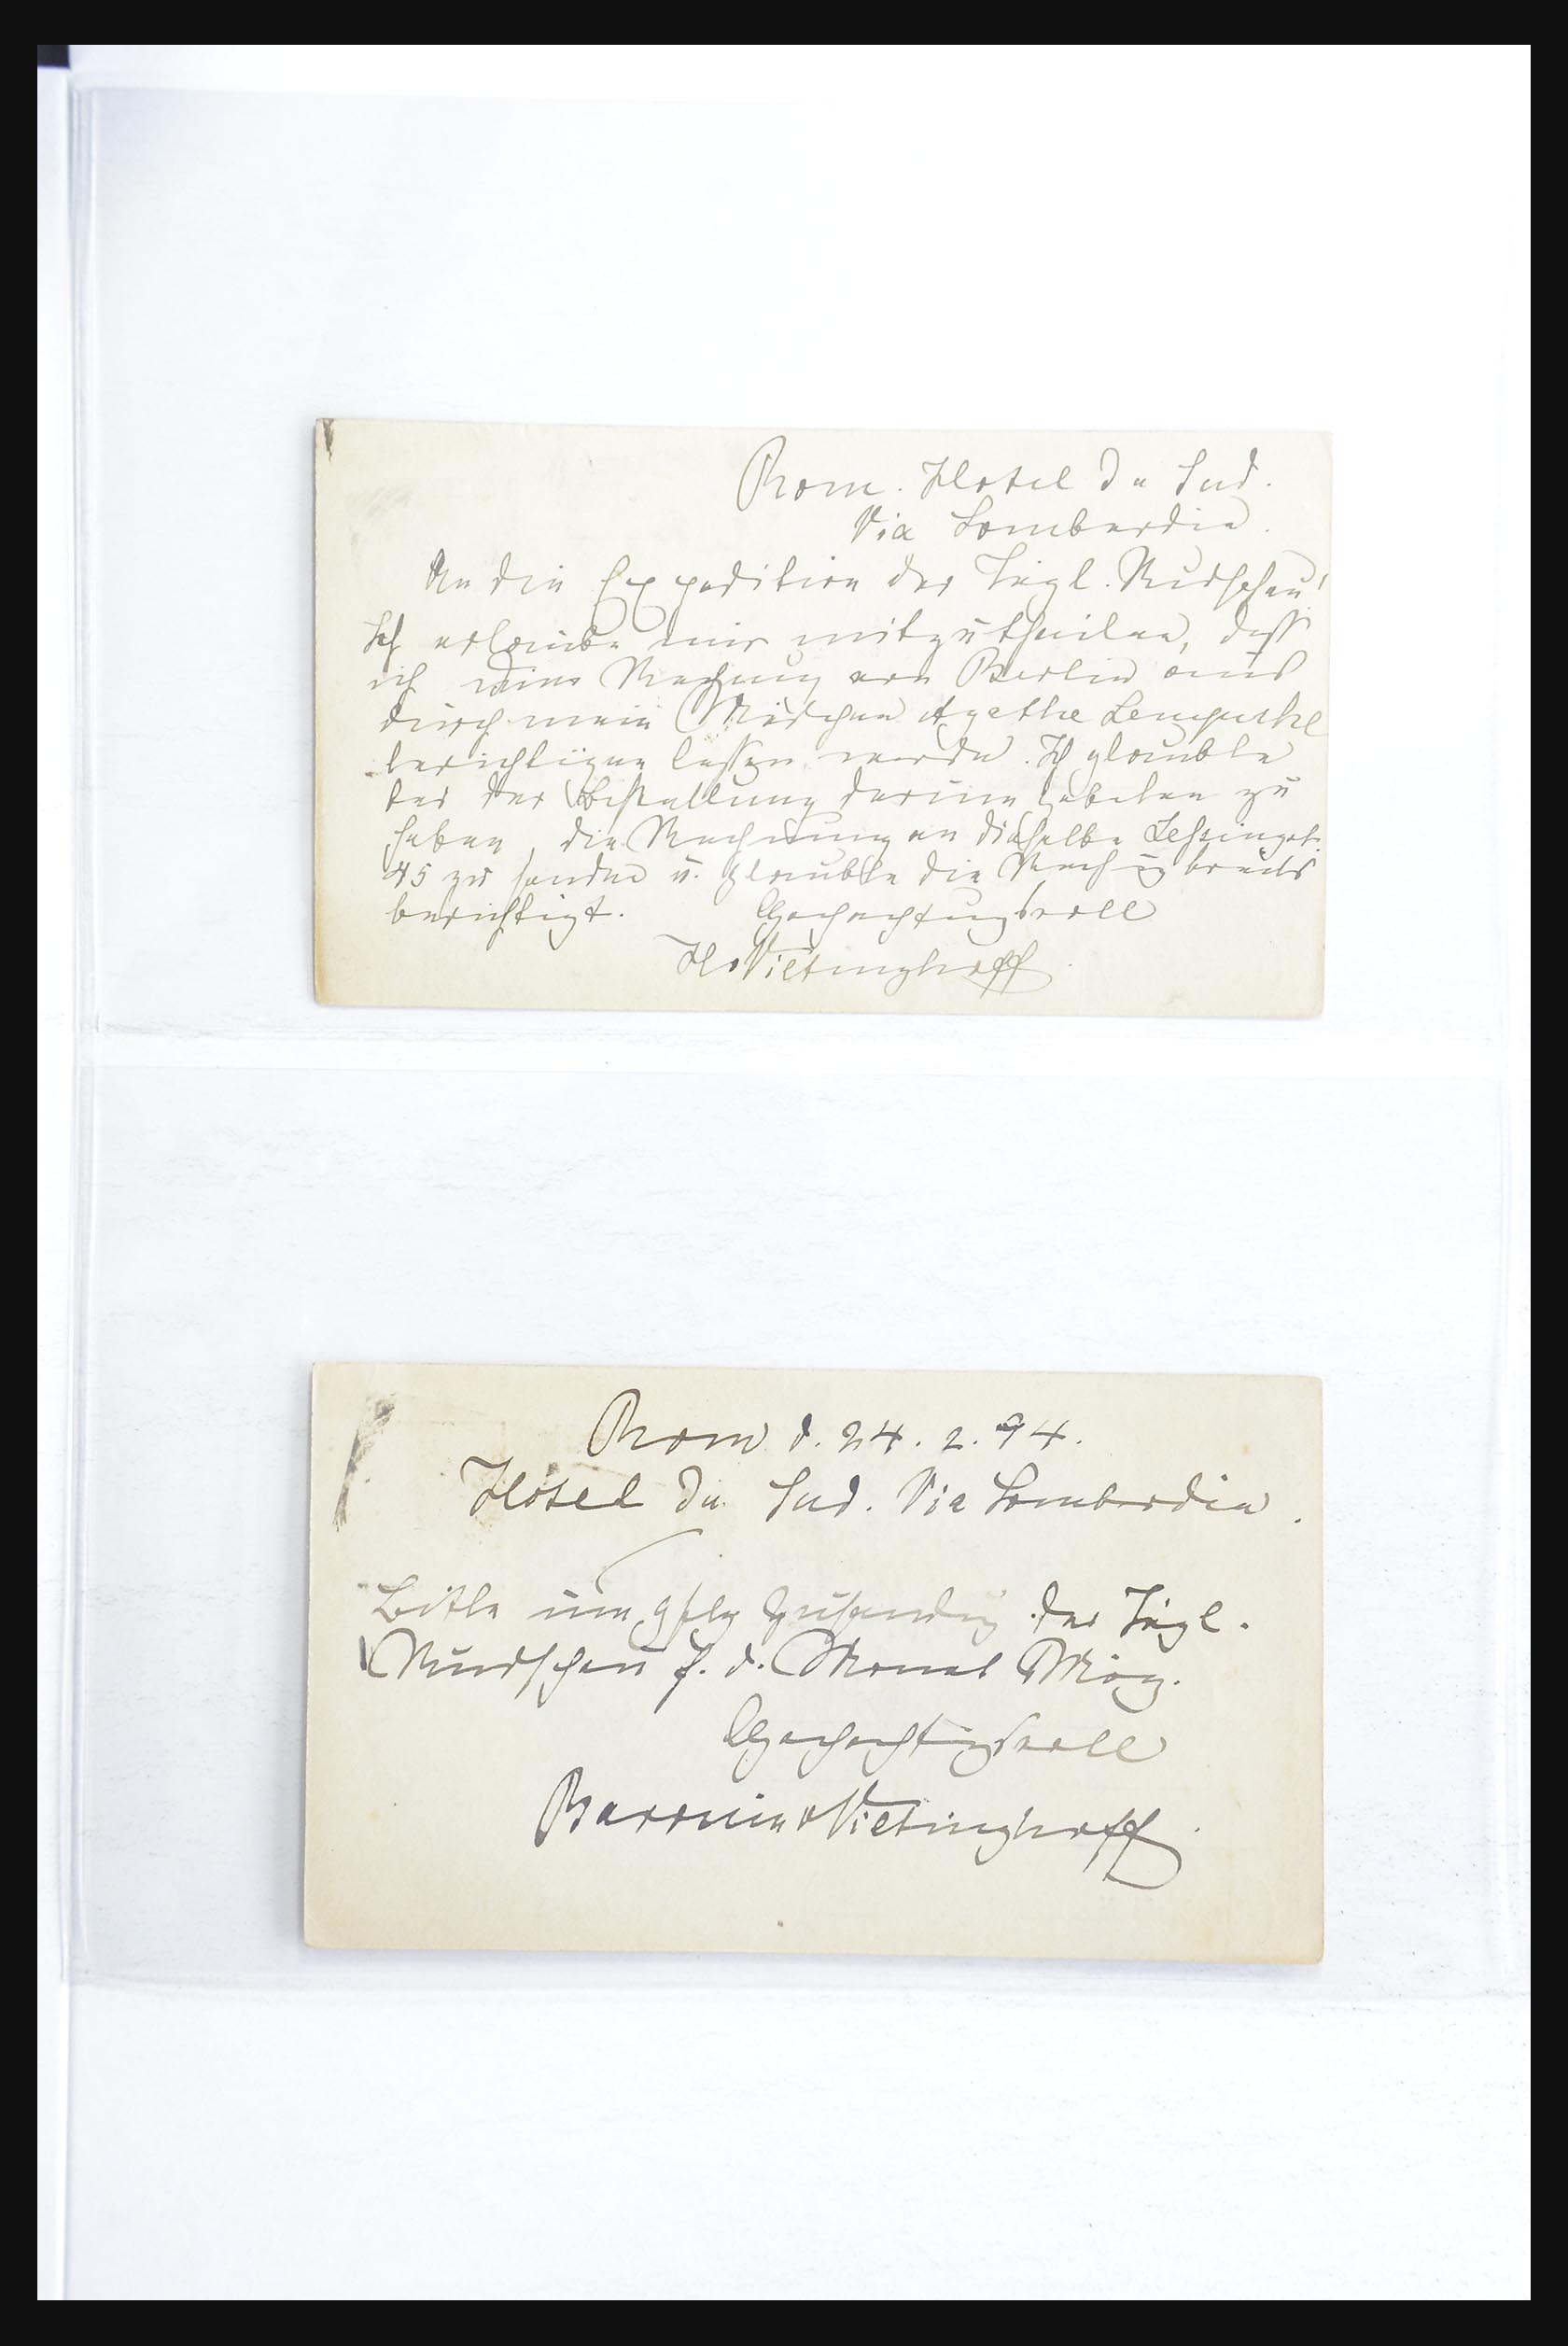 Rom. Hotel du Sud.
Via Lombardia.
An die Expedition der Tägl. Rundschau!
Ich erlaube mir mitzutheilen, dass
ich meine Rechnung von Berlin aus
durch mein Mädchen Agathe
berichtigen lassen werde. Ich glaubte
bei der Bestellung darum gebeten zu
haben, die Rechnung an dieselbe Lessingst.
45 zu senden u. glaubte die Rechnung bereits
berichtigt. Hochachtungsvoll
H v Vietinghoff
Rom d. 24. 2. 94.
Hotel du Sud. Via Lombardia.
Bitte um gfl. Zusendung der Tägl.
Rundschau f. d. Monat März.
Hochachtungsvoll
Baronin v Vietinghoff.